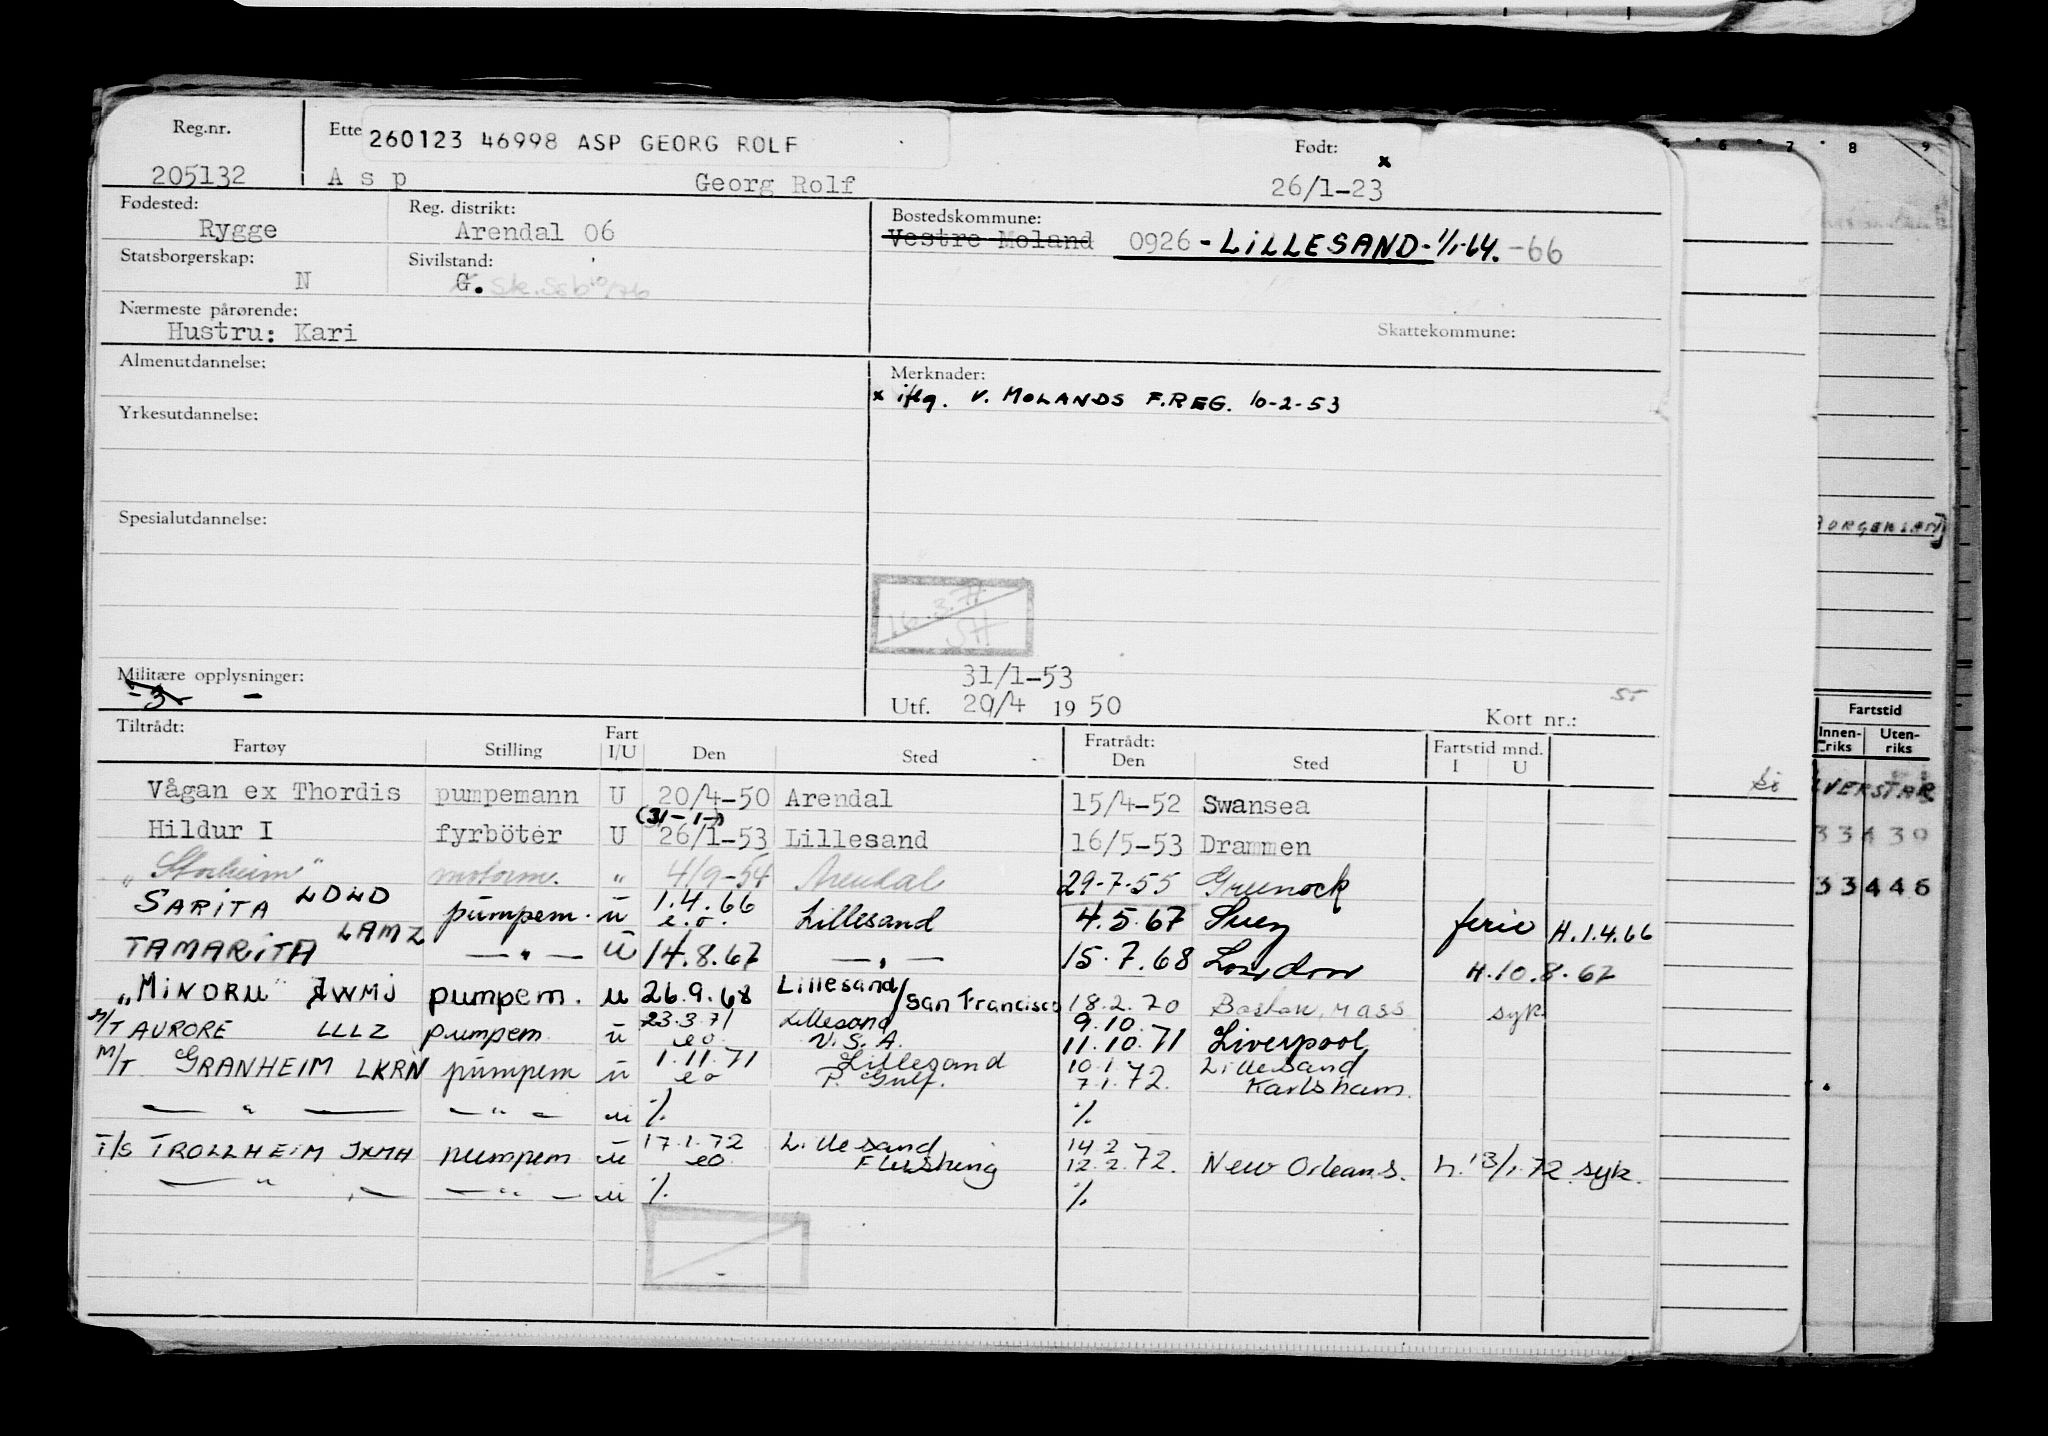 Reg.nr. Ette 260123 46998 ASP GEORG ROLF Født: x
205132 Asp Georg Rolf 26/1-23
Fødested: Rygge Reg. distrikt: Arendal 06 Bostedskommune: Vestre Moland 0926 - LILLESAND - 1/1-64. -66
Statsborgerskap: N Sivilstand: G.
Nærmeste pårørende:
Hustru: Kari Skattekommune:
Almenutdannelse: Merknader:
x iflg. V. MOLANDS F.REG. 10-2-53
Yrkesutdannelse:
Spesialutdannelse:
16.3.77
SH
Militære opplysninger: 31/1-53
-3 - Utf. 20/4 1950 Kort nr.:
Tiltrådt: Fratrådt:
Fartøy Stilling Fart I/U Den Sted Den Sted Fartstid mnd. I U
Vågan ex Thordis pumpemann U 20/4-50 Arendal 15/4-52 Swansea
(31-1-)
Hildur I fyrböter U 26/1-53 Lillesand 16/5-53 Drammen
motorm. " 4/9-54 Arendal 29-7-55 Greenock
SARITA LDLD pumpem. u 1.4.66 e.o. Lillesand 4.5.67 Suez ferie H.1.4.66
TAMARITA LAMZ — " — u 14.8.67 — " — 15.7.68 London H.10.8.67
"MINORU" JWMJ pumpem. u 26.9.68 Lillesand/San Francisco 18.2.70 Boston, MASS syk
M/T AURORE LLLZ pumpem u 23.3.71 eo Lillesand U.S.A. 9.10. 11.10.71 Liverpool
M/T GRANHEIM LKRN pumpem u 1.11.71 eo Lillesand P. Gulf. 10.1 7.1.72. Lillesand Karlshamn.
— " — — " — u % %
T/S TROLLHEIM JXMH pumpem u 17.1.72 eo Lillesand Flushing 14.2 12.2.72. New Orleans. h. 13/1.72. syk.
— " — — " — u % %
5 6 7 8 9
BORGERSEN]
Fartstid
Innenriks Utenriks
33430
33446